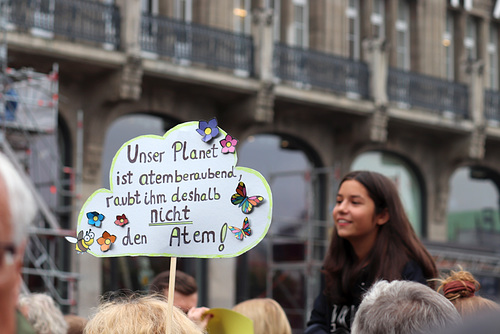 Unser Planet
ist atemberaubend,
raubt ihm deshalb
nicht
den Atem!